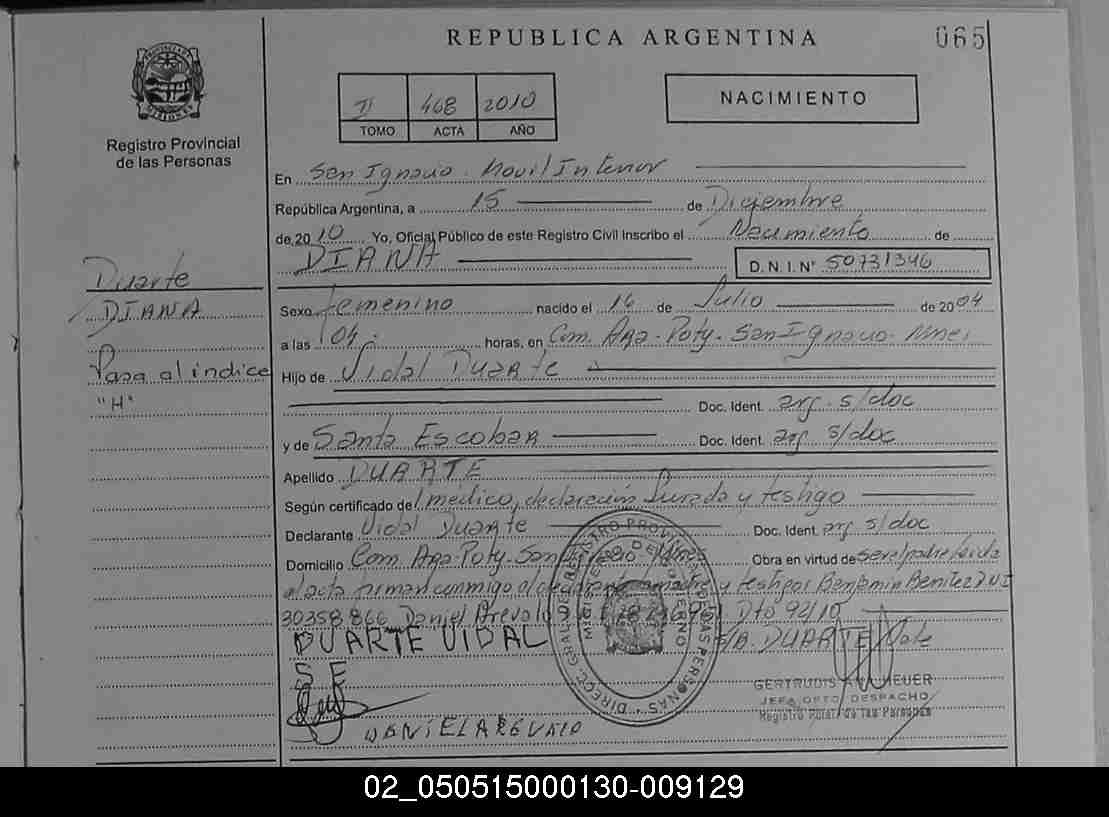 REPUBLICA ARGENTINA
065
II 468 2010
TOMO ACTA AÑO
NACIMIENTO
Registro Provincial
de las Personas
En San Ignacio - Movil Interior
República Argentina, a 15 de Diciembre
de 2010 Yo, Oficial Público de este Registro Civil Inscribo el Nacimiento de
DIANA D.N.I.Nº 50731346
Duarte
DIANA
Pasa al indice
"H"
Sexo femenino nacido el 16 de Julio de 2004
a las 04 horas, en Com. Aza-Poty-San Ignacio-Mnes
Hijo de Vidal Duarte
Doc. Ident. arg. s/doc
y de Santa Escobar Doc. Ident. arg s/doc
Apellido DUARTE
Según certificado del medico, declaración Jurada y testigo
Declarante Vidal Duarte Doc. Ident. arg s/doc
Domicilio Com. Aza-Poty-San Obra en virtud de ser el padre leida
el acta firman conmigo el declarante, madre y testigos Benjamin Benitez DNI
30358866 Daniel Arevalo Dto 92/10
S/B. DUARTE Vale
DUARTE VIDAL
S E
DANIEL AREVALO
DIRECC. GRAL. DEL REGISTRO PROVINCIAL DE LAS PERSONAS
MINISTERIO DE GOBIERNO
GERTRUDIS HEUER
JEFA DPTO DESPACHO
Registro de las Personas
02_050515000130-009129